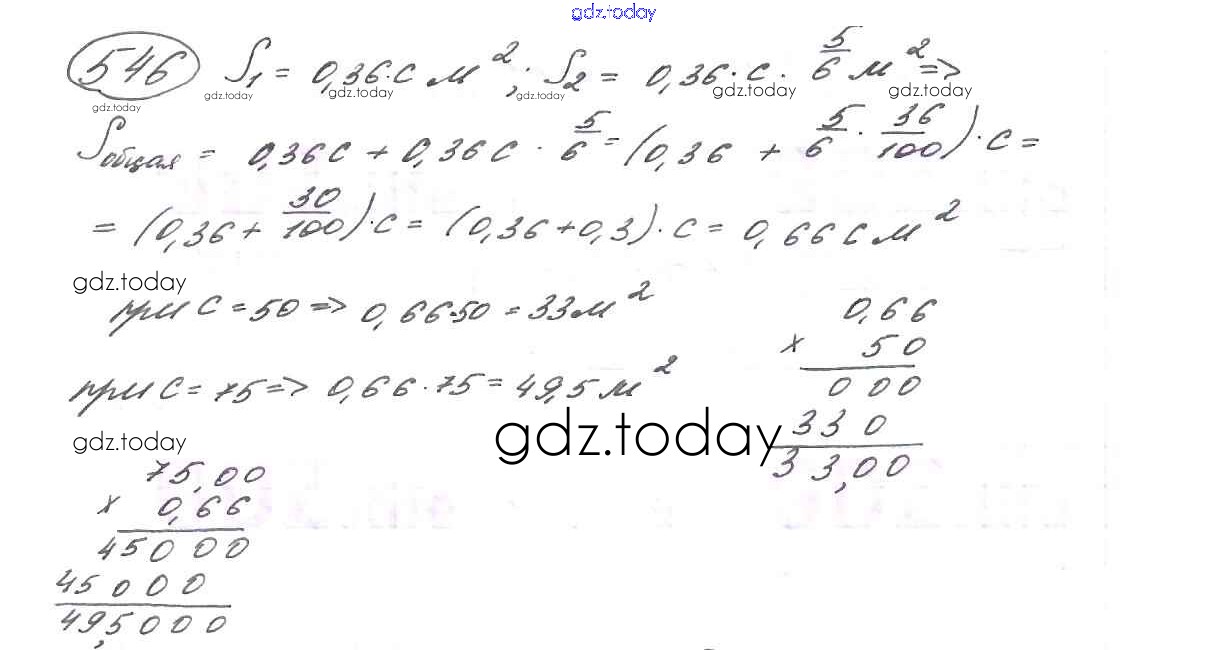 gdz.today
546 S₁ = 0,36·c м²; S₂ = 0,36·c·5/6 м² =>
gdz.today gdz.today gdz.today gdz.today gdz.today gdz.today
Sобщая = 0,36c + 0,36c · 5/6 = (0,36 + 5/6 · 36/100)·c =
= (0,36 + 30/100)·c = (0,36+0,3)·c = 0,66c м²
gdz.today
при c = 50 => 0,66·50 = 33 м²
при c = 75 => 0,66·75 = 49,5 м²
gdz.today
gdz.today
0,66
x 50
000
330
33,00
75,00
x 0,66
45000
45000
49,5000